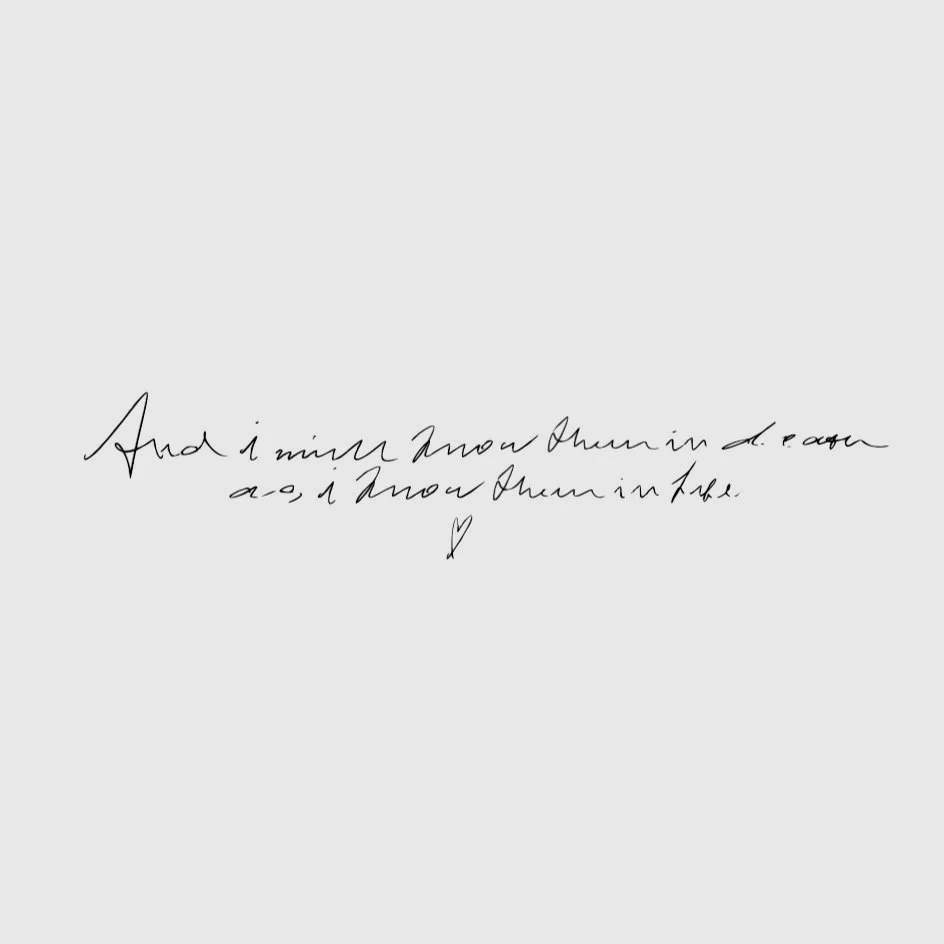 And i will know them in death
as i know them in life.